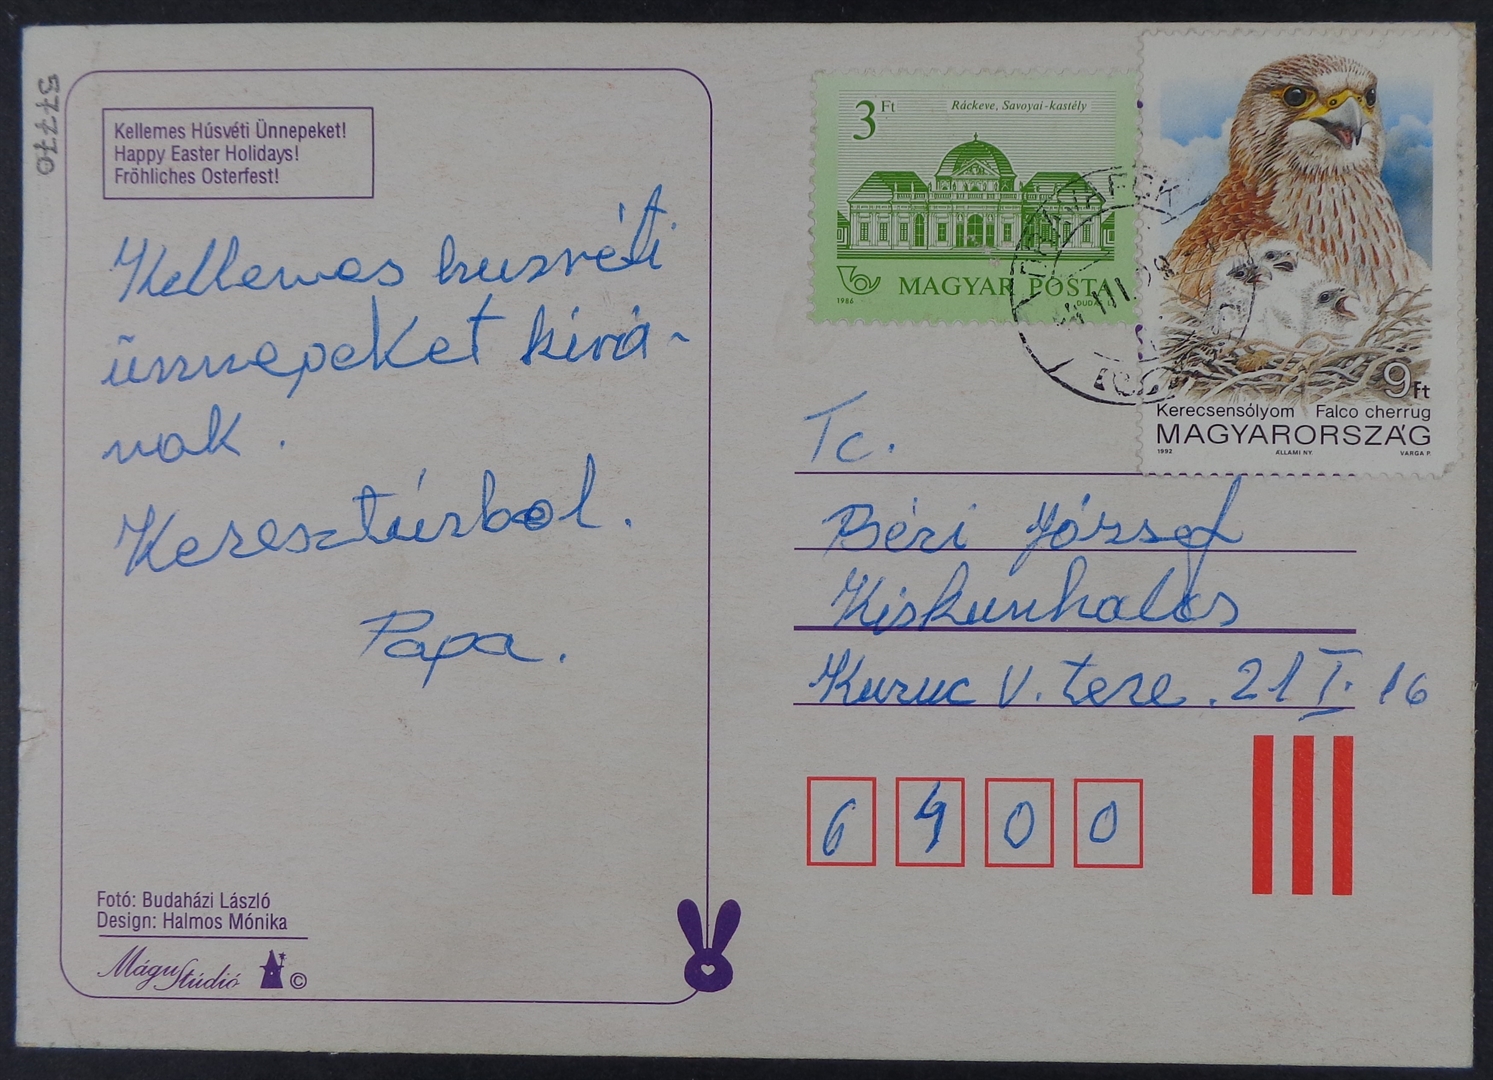 57770
Kellemes Húsvéti Ünnepeket!
Happy Easter Holidays!
Fröhliches Osterfest!
Kellemes husvéti
ünnepeket kivá-
nok.
Keresztúrbol.
Papa.
Fotó: Budaházi László
Design: Halmos Mónika
Mágus Stúdió ©
3 Ft
Ráckeve, Savoyai-kastély
MAGYAR POSTA
1986
9 Ft
Kerecsensólyom Falco cherrug
MAGYARORSZÁG
1992 ÁLLAMI NY. VARGA P.
Tc.
Béri József
Kiskunhalas
Kuruc V. tere. 21 I. 16
6400